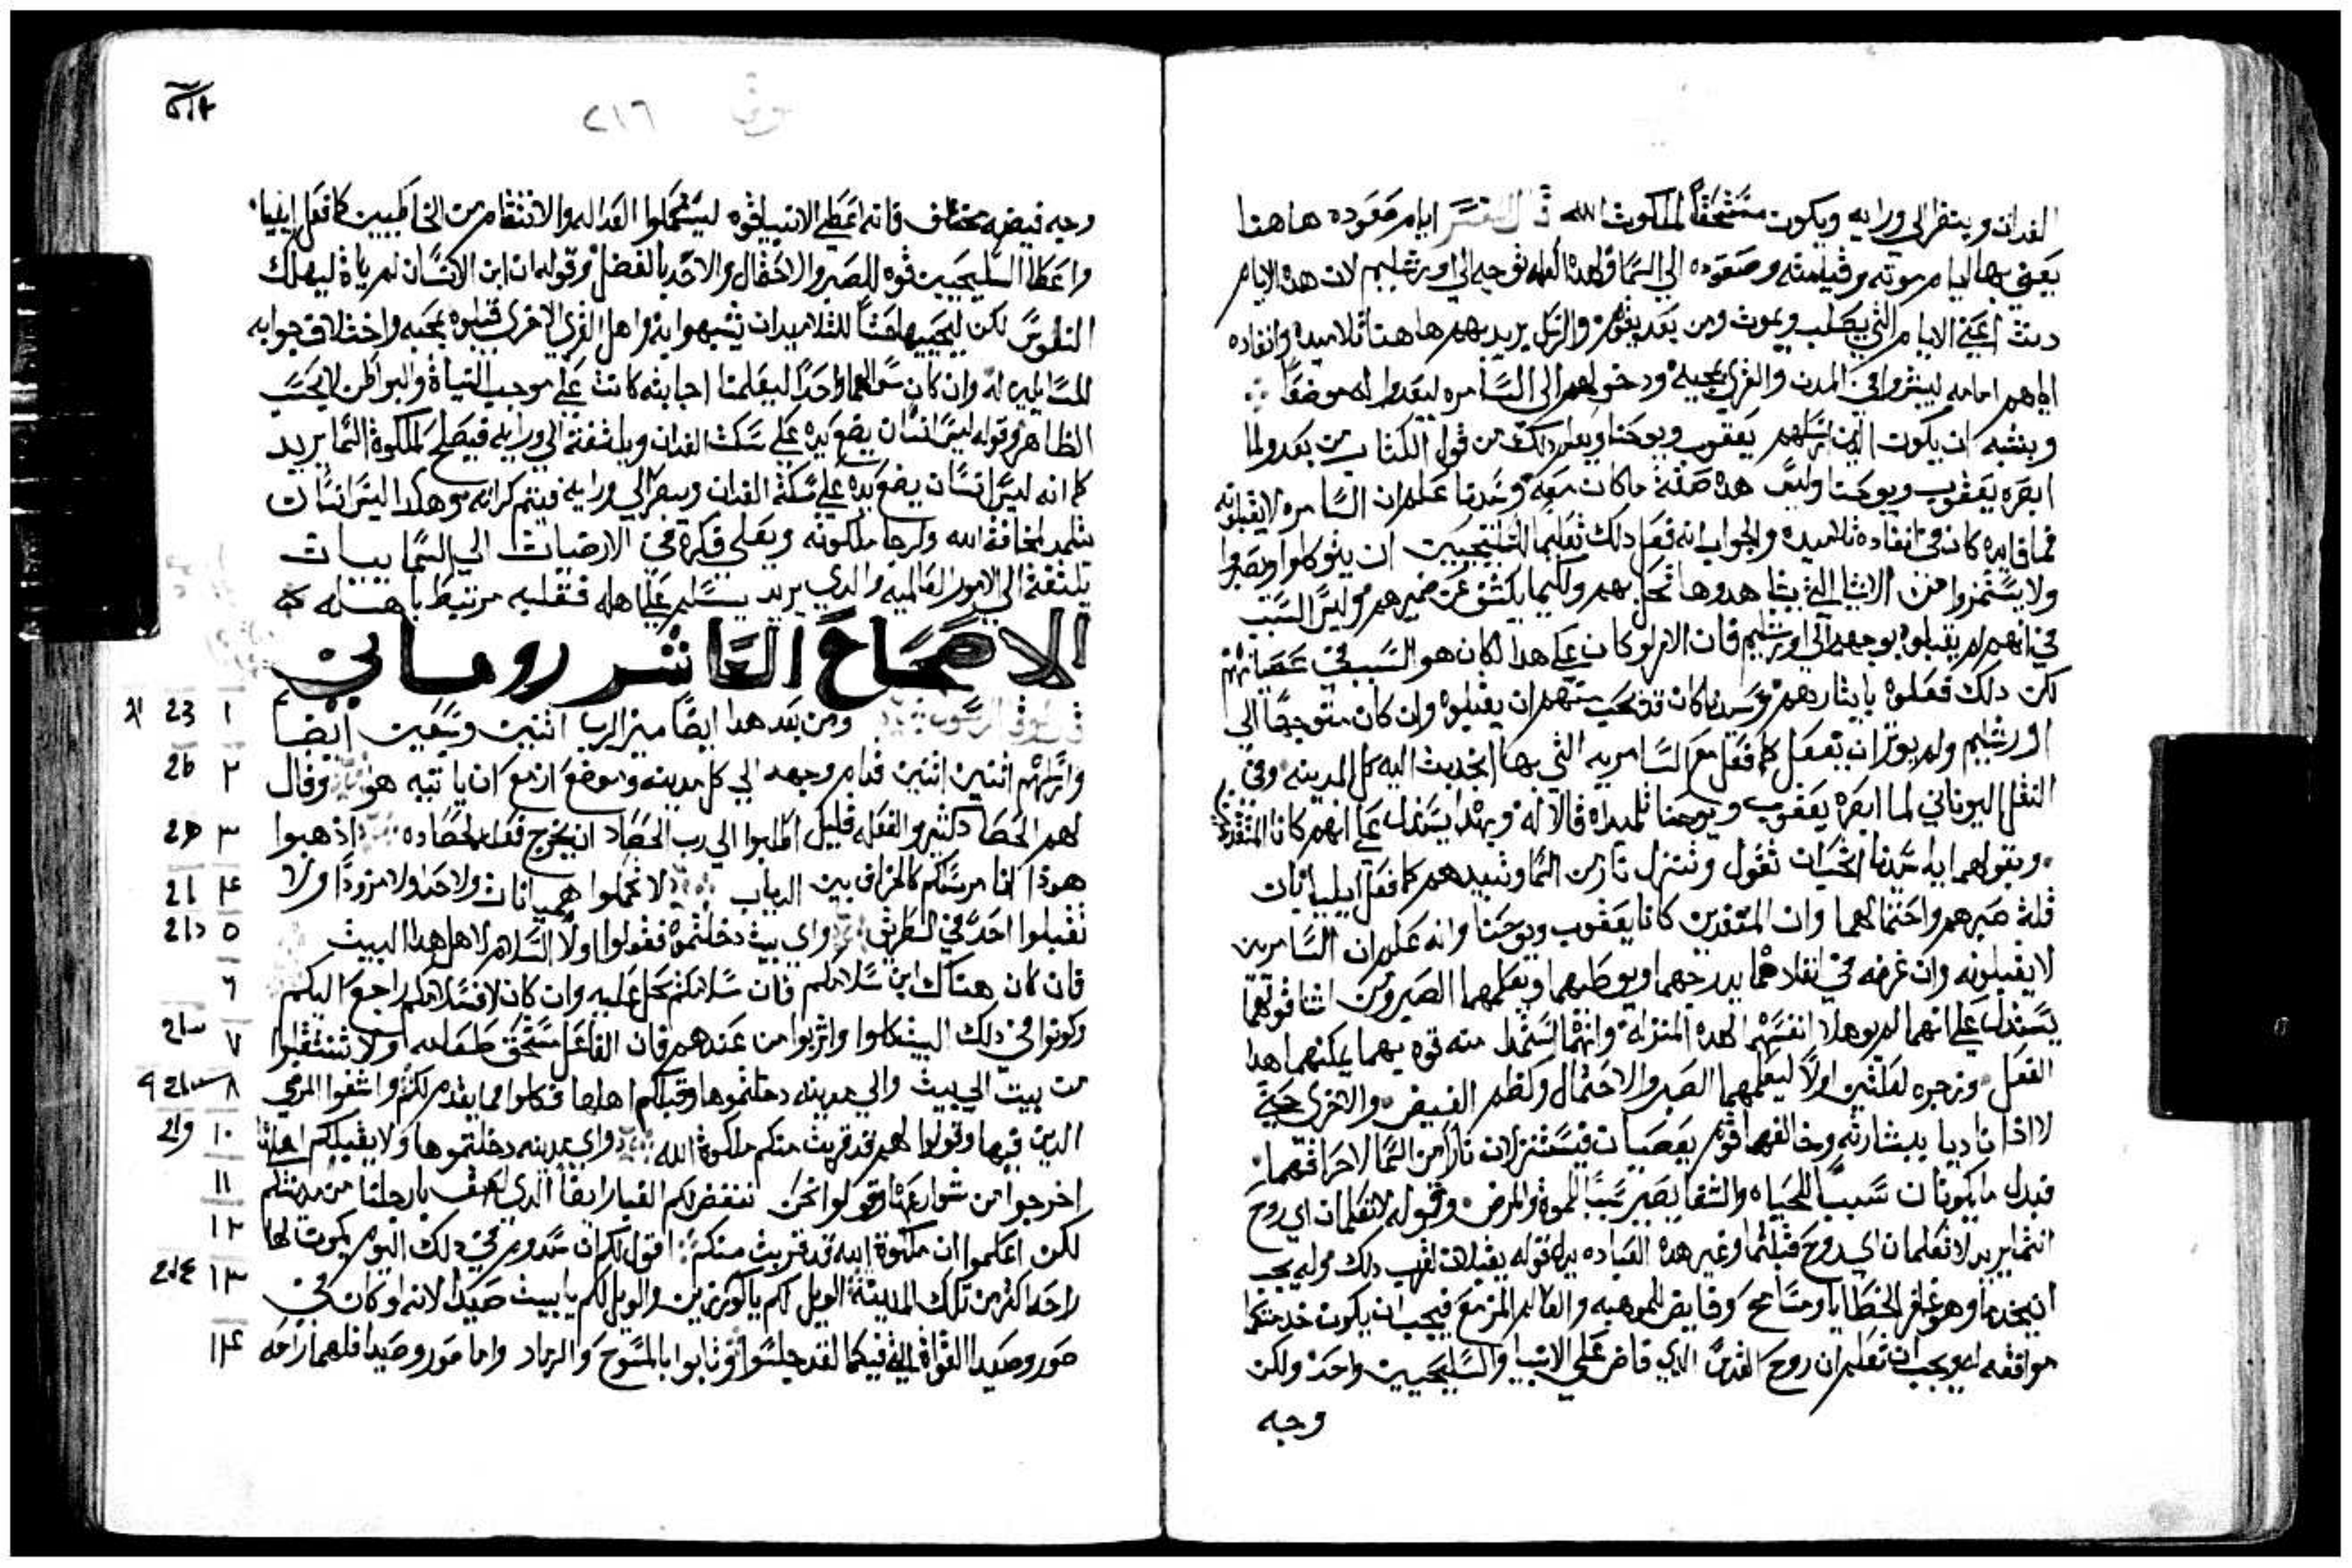 الفدان وينظر الي ورايه ويكون مستحقا لملكوت الله قال المفسر ايام صعوده هاهنا
يعني بها ايام موته وقيامته وصعوده الي السما ولهذا توجه الي اورشليم لان هذه الايام
دنت اعني الايام التي يصلب ويموت ومن بعد يقوم والرسل يريد بهم هاهنا تلاميذه وانفاده
اياهم امامه ليبشروا في المدن والقري بمجيه ودخولهم الي السامره ليعدوا له موضعا
ويشبه ان يكون الذين ارسلهم يعقوب ويوحنا ويعلم ذلك من قول الكتاب من بعد ولما
ابصره يعقوب ويوحنا وليس هذه صفة ما كان معه وسيدنا علم ان السامره لا يقبلونه
فما فايده كان في انفاده تلاميذه والجواب انه فعل ذلك تعليما للسليحيين ان يتوكلوا ويصبروا
ولا يستمزوا من الاشيا التي يشاهدوها تحل بهم ولكيما يكشف عن ضميرهم وليس السبب
في انهم لم يقبلوه توجهه الي اورشليم فان الامر لو كان علي هذا لكان هو السبب في عصيانهم
لكن ذلك فعلوه بايثارهم وسيدنا كان قد يحب منهم ان يقبلوه وان كان متوجها الي
اورشليم ولم يوثر ان يفعل كما فعل مع السامريه التي بها انجذبت اليه كل المدينه وفي
النقل اليوناني لما ابصره يعقوب ويوحنا تلميذاه قالا له وبهذا يستدل علي انهم كانا المنفذين
وبقولهما يا سيدنا اتحب ان نقول وتنزل نار من السما وتبيدهم كما فعل ايليا بان
قلة صبرهم واحتمالهما وان المنفذين كانا يعقوب ويوحنا وانه علم ان السامريين
لا يقبلونه وان غرضه في انفادهما يدرجهما ويوطيهما ويعلمهما الصبر
يستدل علي انهما لم يوهلا انفسهما لهذه المنزلة وانهما استمدا منه قوه بهما يمكنهما هذا
الفعل وزجره لعلتين اولا ليعلمهما الصبر والاحتمال وكظم الغيض والاخري حتي
لا اذا ناديا ببشارته وخالفهما قوم بعصيان فيستنزلان نارا من السما لاحراقهما
قبل ما يكونان سببا للحياه والشفا يصير سببا للموت والمرض وقوله لا تعلمان اي روح
انتما يريد لا تعلمان اي روح قبلتما وغير هذه العباده
ان يخدما وهو غافر الخطايا ومسامح وفايض الموهبه والعالم المزمع فيجب ان يكون خدمتكما
موافقه له ويجب ان تعلم ان روح القدس الذي فاض علي الانبيا والسليحيين واحد ولكن
وجه
لوقا ٢١٦
وجه فيضه مختلف فانه اعطي الانبيا قوه ليستعملوا العداله والانتقام من الخاطيين كما فعل ايليا
واعطا السليحيين قوه للصبر والاحتمال والاخذ بالفضل وقوله ان ابن الانسان لم ياة ليهلك
النفوس لكن ليحييها حثا للتلاميذ ان يتشبهوا به واهل القري الاخري قبلوه بمحبه واختلاف جوابه
للسايلين له وان كان سوالهما واحدا ليعلمنا اجابته كانت علي موجب النيات والبواطن لا بحسب
الظاهر وقوله ليس انسان يضع يده علي سكت الفدان ويلتفت الي ورايه فيصلح لملكوة السما يريد
كما انه ليس انسان يضع يده علي سكة الفدان وينظر الي ورايه فيتم كرابه هو هكذا ليس انسان
يتلمذ لمخافة الله ولرجا ملكوته ويعلي فكره في الارضيات الي السماييات
يلتفت الي الامور العالميه والذي يريد يسلم علي اهله فقلبه مرتبط باهله
الاصحاح العاشر روماني
قال لوقا الرسول ومن بعد هذا ايضا ميز الرب اثنين وسبعين ايضا ١ 23
وارسلهم اثنين اثنين قدام وجهه الي كل مدينه وموضع ازمع ان ياتيه هو وقال ٢ 26
لهم الحصاد كثير والفعله قليل اطلبوا الي رب الحصاد ان يخرج فعله لحصاده اذهبوا ٣
هوذا انا مرسلكم كالخراف بين الدياب لا تحملوا هميانات ولا حذا ولا مزودا ولا ٤
تقبلوا احد في الطريق واي بيت دخلتموه فقولوا اولا السلام لاهل هذا البيت ٥
فان كان هناك ابن سلامكم فان سلامكم يحل عليه وان كان لا فسلامكم راجع اليكم ٦
وكونوا في ذلك البيت كلوا واشربوا من عندهم فان الفاعل مستحق طعامه ولا تنتقلوا ٧
من بيت الي بيت والي مدينه دخلتموها وقبلكم اهلها فكلوا مما يقدم لكم واشفوا المرضي ٨ ٩
الذين فيها وقولوا لهم قد قربت منكم ملكوة الله واي مدينه دخلتموها ولا يقبلكم اهلها ١٠
اخرجوا من شوارعها وقولوا نحن ننفض لكم الغبار ايضا الذي لصق بارجلنا من مدينتكم ١١
لكن اعلموا ان ملكوة الله قد قربت منكم اقول لكم ان سدوم في ذلك اليوم يكون لها ١٢
راحه اكثر من تلك المدينة الويل لكم يا كورزين والويل لكم يا بيت صيدا لانه لو كان في ١٣
صور وصيدا القواة التي فيكما لقد جلسوا وتابوا بالمسوح والرماد واما صور وصيدا فلهما راحه ١٤